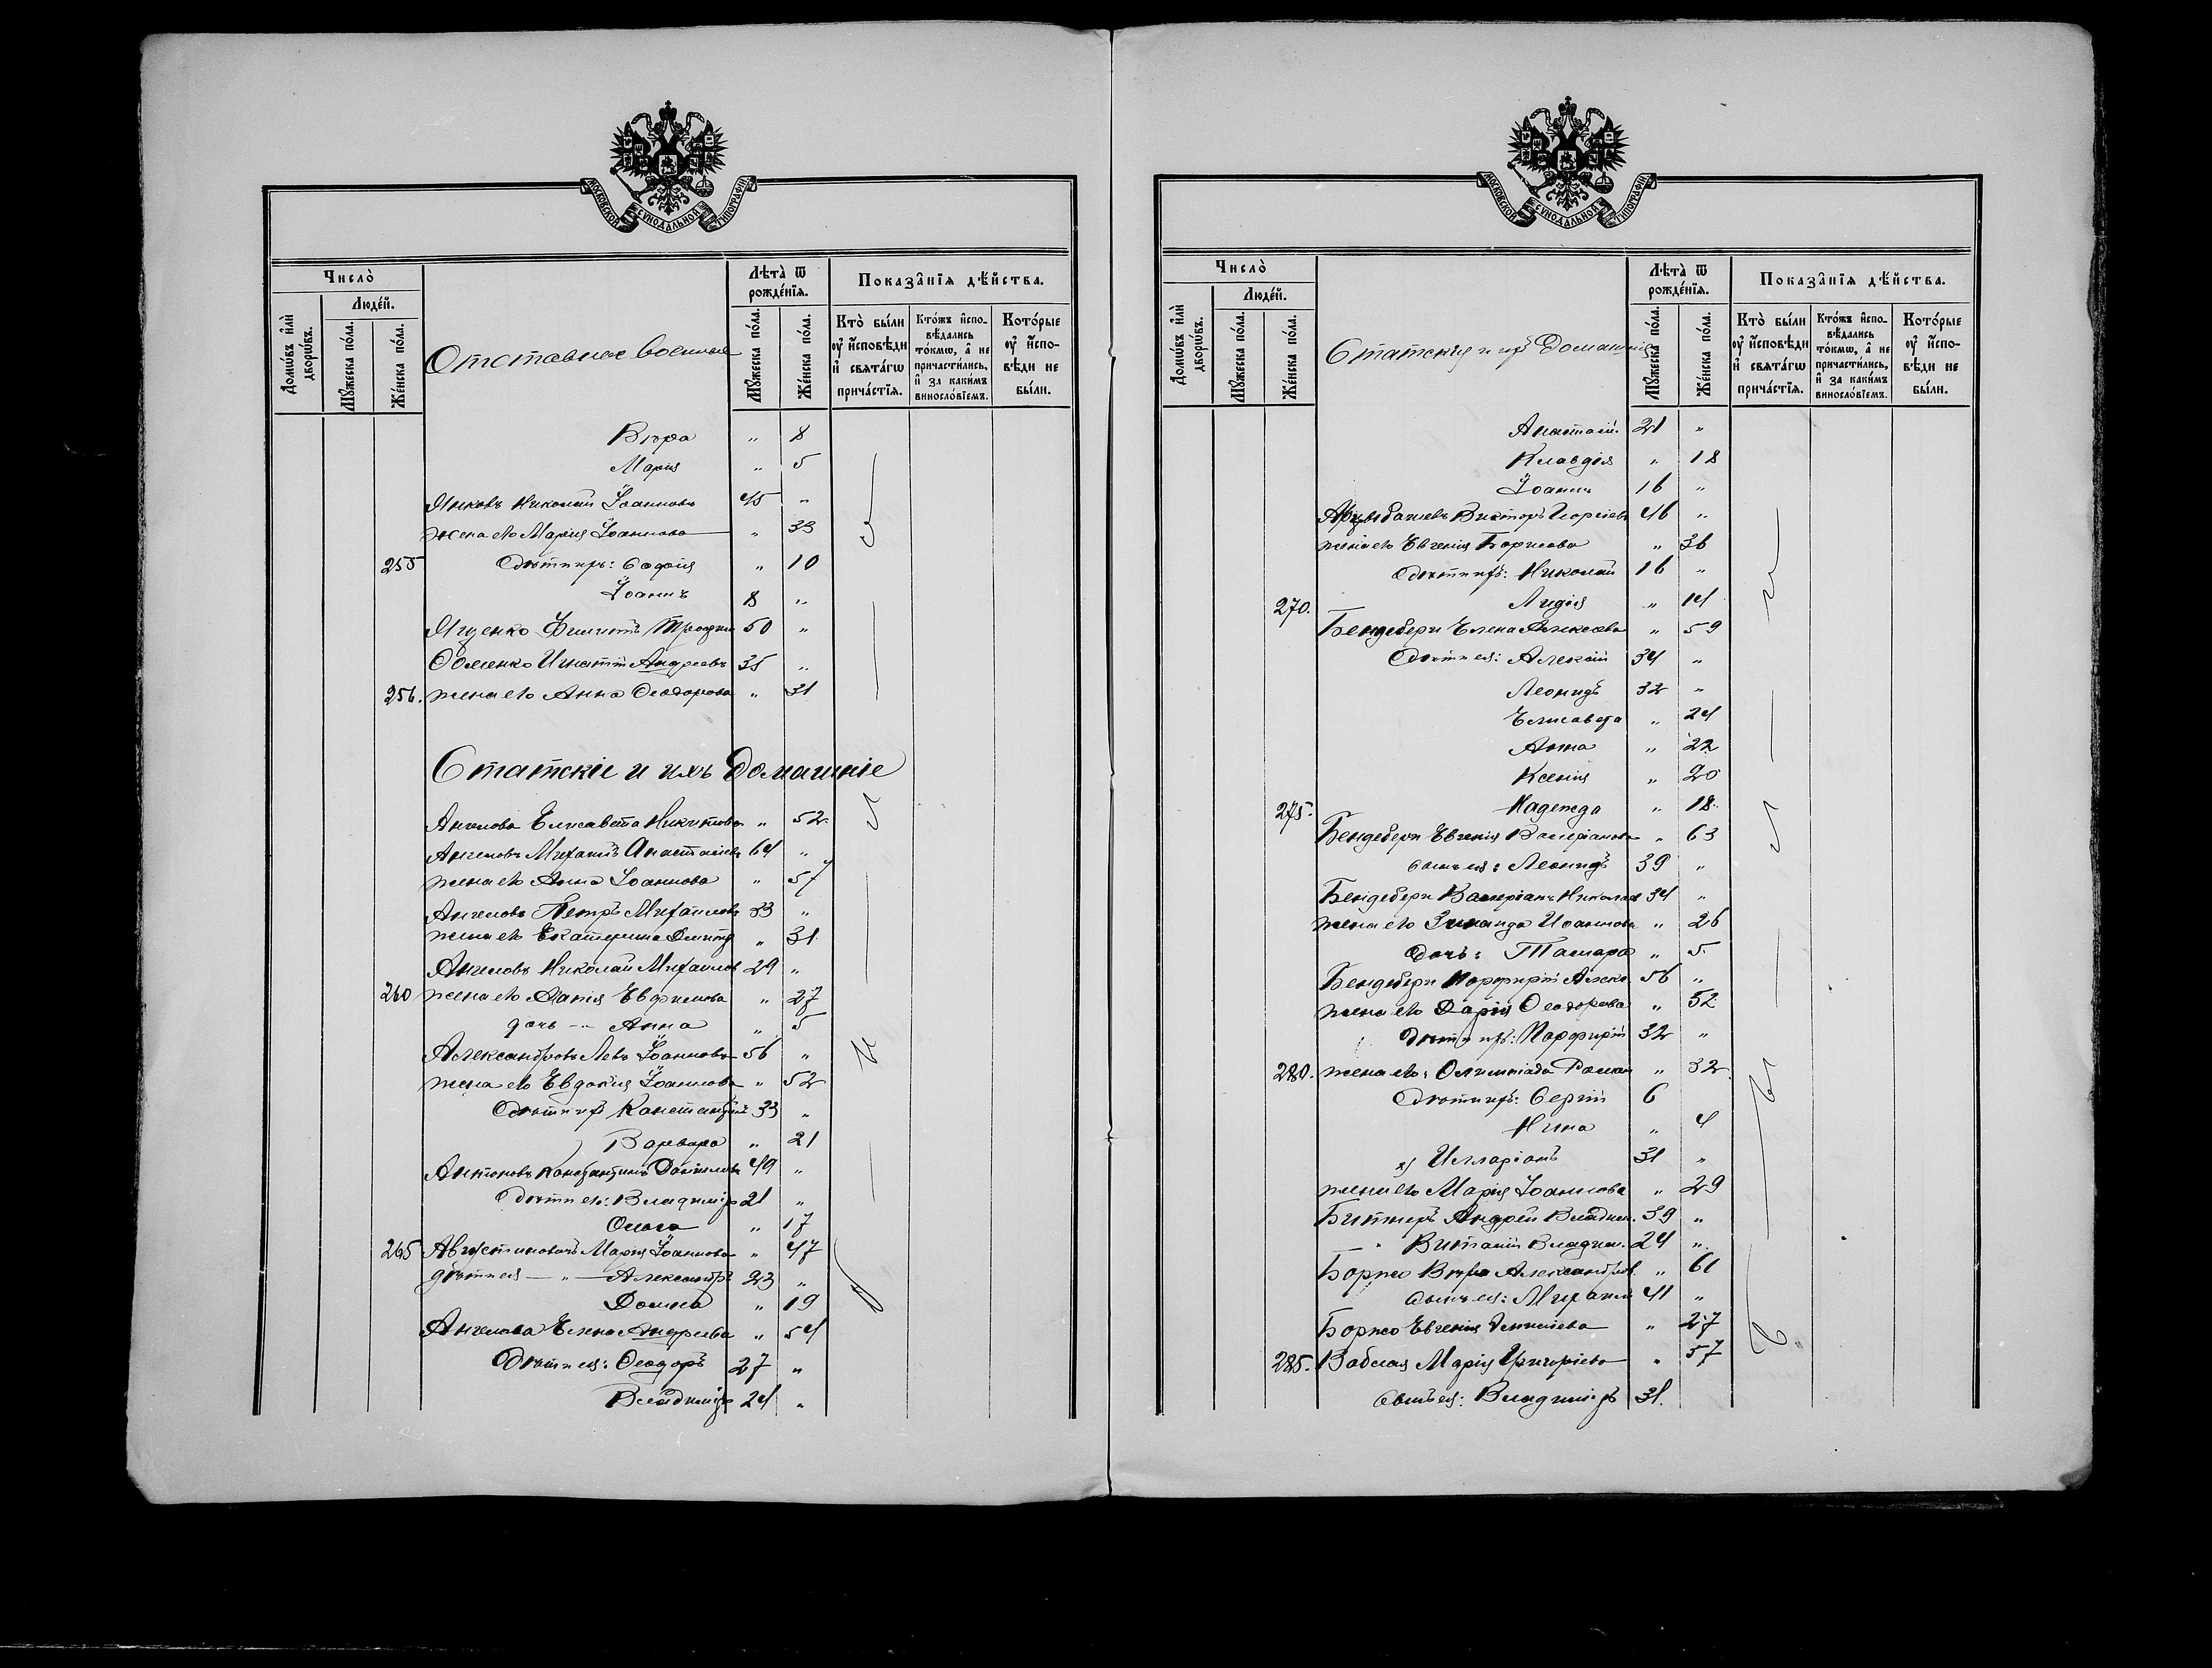 МОСКОВСКОЙ СѴНОДАЛЬНОЙ ТИПОГРАФІИ
Число̀
Людéй.
Домѡ́въ и҆лѝ дворѡ́въ.
Мꙋ́жеска по́ла.
Же́нска по́ла.
Отставные военные
Лѣ́та ѿ рожде́нїя.
Мꙋ́жеска по́ла.
Же́нска по́ла.
Показа̑нїя дѣ́йства.
Кто̀ бы́ли оу҆ и҆сповѣ́ди и҆ свѧта́гѡ прича́стїѧ.
Кто́жъ и҆сповѣ́дались то́кмѡ, а҆ не причасти́лись, и҆ за каки́мъ винослóвїемъ.
Кото́рые оу҆ и҆спо-вѣ́ди не бы́ли.
Вѣра " 8
Марія " 5
Янковъ Николай Іоанновъ 45 "
жена его Марія Іоаннова " 33
255 Дѣти ихъ: Софія " 10
Іоаннъ 8 "
Яценко Филиппъ Трофим 50 "
Игнатій Андреевъ 35 "
256. жена его Анна Ѳеодорова " 31
Статскіе и ихъ домашніе
Ангелова Елисавета Никитова " 52
Ангеловъ Михаилъ Анастасіевъ 64 "
жена его Анна Іоаннова " 57
Ангеловъ Петръ Михаиловъ 33 "
жена его Екатерина Димитр " 31
Ангеловъ Николай Михаилов 29 "
260 жена его Евфимова " 27
дочь -"- Анна " 5
Александровъ Левъ Іоанновъ 56 "
жена его Евдокія Іоаннова " 52
Дѣти ихъ Константинъ 33 "
Варвара " 21
Антоновъ Константинъ Даніиловъ 49 "
Дѣти его: Владиміръ 21 "
Ольга " 17
265 Августиновичъ Марія Іоаннова " 47
дѣти ея -"- Александръ 23 "
Домна " 19
Ангелова Елена Андреева " 54
Дѣти ея: Ѳеодоръ 27 "
Владиміръ 24 "
МОСКОВСКОЙ СѴНОДАЛЬНОЙ ТИПОГРАФІИ
Число̀
Людéй.
Домѡ́въ и҆лѝ дворѡ́въ.
Мꙋ́жеска по́ла.
Же́нска по́ла.
Статскія и ихъ домашнія
Лѣ́та ѿ рожде́нїя.
Мꙋ́жеска по́ла.
Же́нска по́ла.
Показа̑нїя дѣ́йства.
Кто̀ бы́ли оу҆ и҆сповѣ́ди и҆ свѧта́гѡ прича́стїѧ.
Кто́жъ и҆сповѣ́дались то́кмѡ, а҆ не причасти́лись, и҆ за каки́мъ винослóвїемъ.
Кото́рые оу҆ и҆спо-вѣ́ди не бы́ли.
Анастасій 21 "
Клавдія " 18
Іоаннъ 16 "
Арцыбашевъ Викторъ Георгіевъ 46 "
жена его Евгенія Борисова " 36
Дѣти ихъ: Николай 16 "
270. Лидія " 14
Бендебери Елена Алексѣева " 59
Дѣти ея: Алексій 34 "
Леонидъ 32 "
Елисавета " 24
Анна " 22
Ксенія " 20
275. Надежда " 18
Бендебери Евгенія Валеріанова " 63
сынъ ея: Леонидъ 39 "
Бендебери Валеріанъ Николаев 34 "
жена его Зинаида Иоаннова " 26
дочь: Тамара " 5
Бендебери Порфирій Алекс 56 "
жена его Дарія Ѳеодорова " 52
Дѣти ихъ: Порфирій 32 "
280. жена его: Олимпіада Роман " 32
Дѣти ихъ: Сергій 6
Нина " 4
х) Илларіонъ 31 "
жена его Марія Іоаннова " 29
Битнеръ Андрей Владим. 39 "
— " Виталій Владим. 24 "
Боржо Вѣра Александров. " 61
сынъ ея: Михаилъ 41 "
Боржо Евгенія " 27
285. Марія Григоріева " 57
сынъ ея: Владиміръ 31.